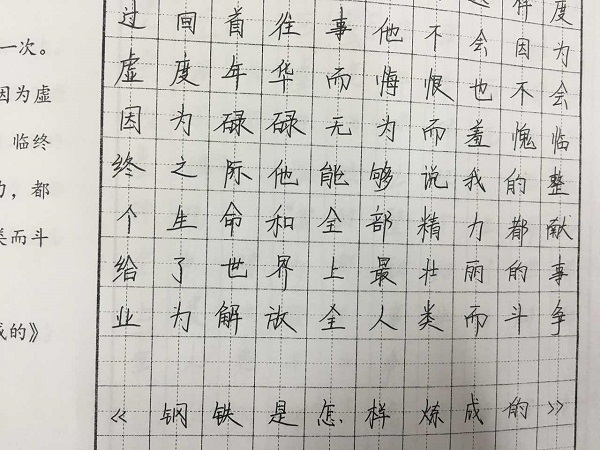 一次。
因为虚
临终
，都
类而斗
的》
样度
过回首往事他不会因为
虚度年华而悔恨也不会
因为碌碌无为而羞愧临
终之际他能够说我的整
个生命和全部精力都献
给了世界上最壮丽的事
业为解放全人类而斗争
《钢铁是怎样炼成的》